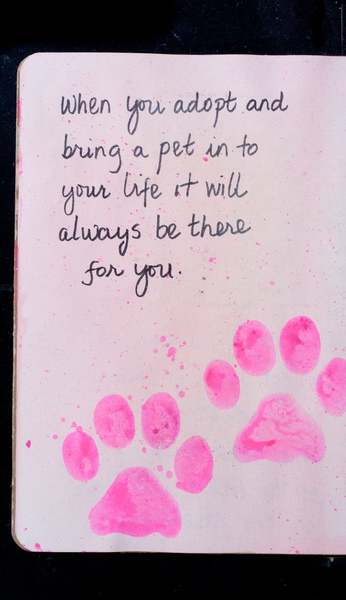 When you adopt and
bring a pet in to
your life it will
always be there
for you.